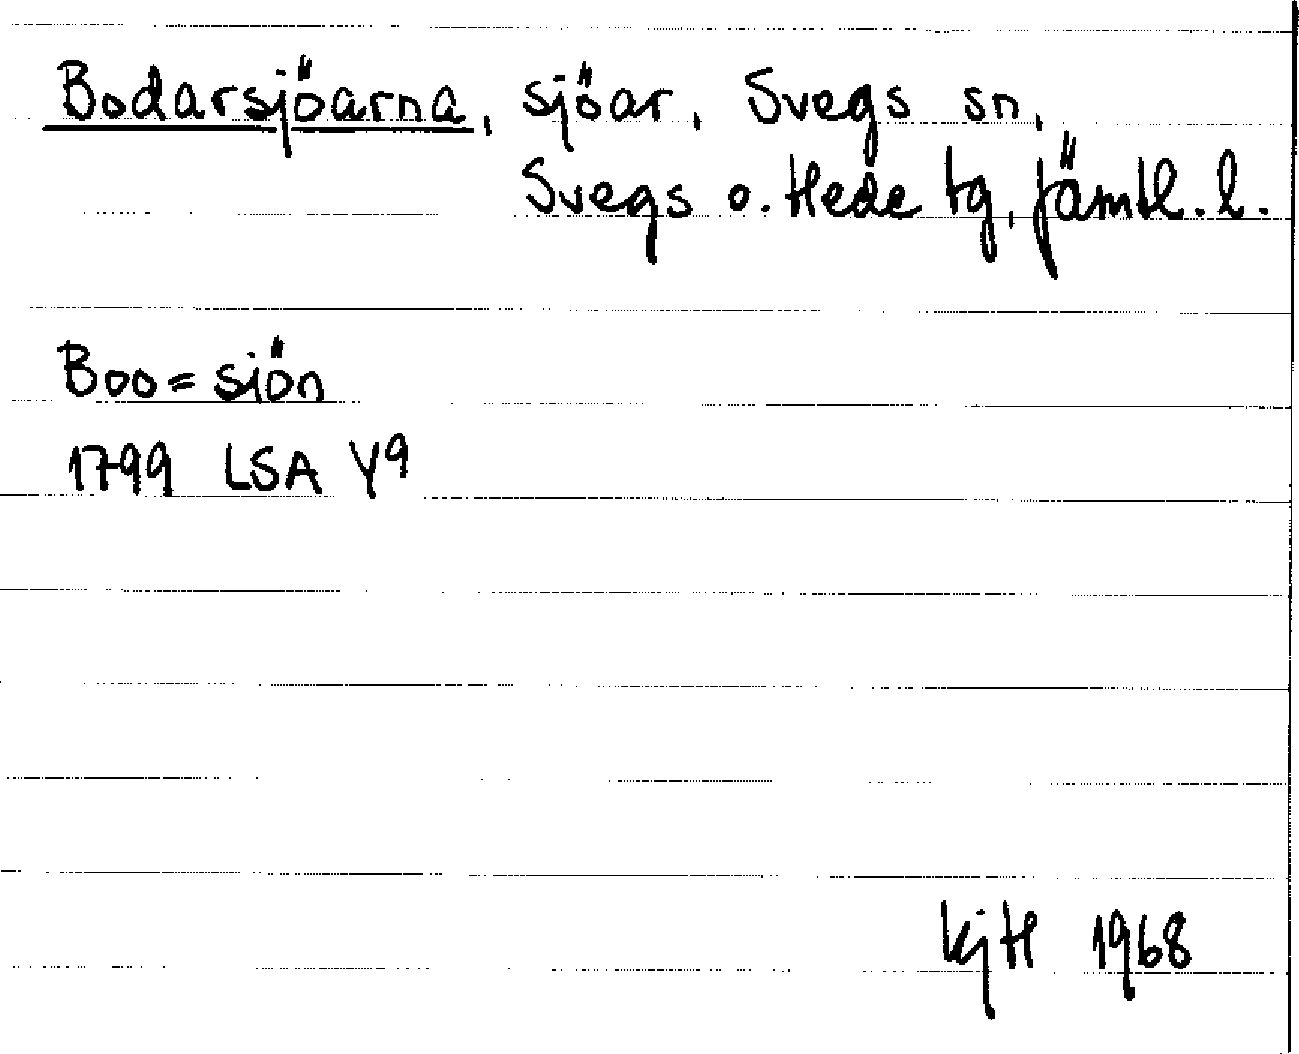 Bodarsjöarna, sjöar, Svegs sn,
Svegs o. Hede tg, Jämtl. l.
Boo=sjön
1799 LSA Y9
KjH 1968